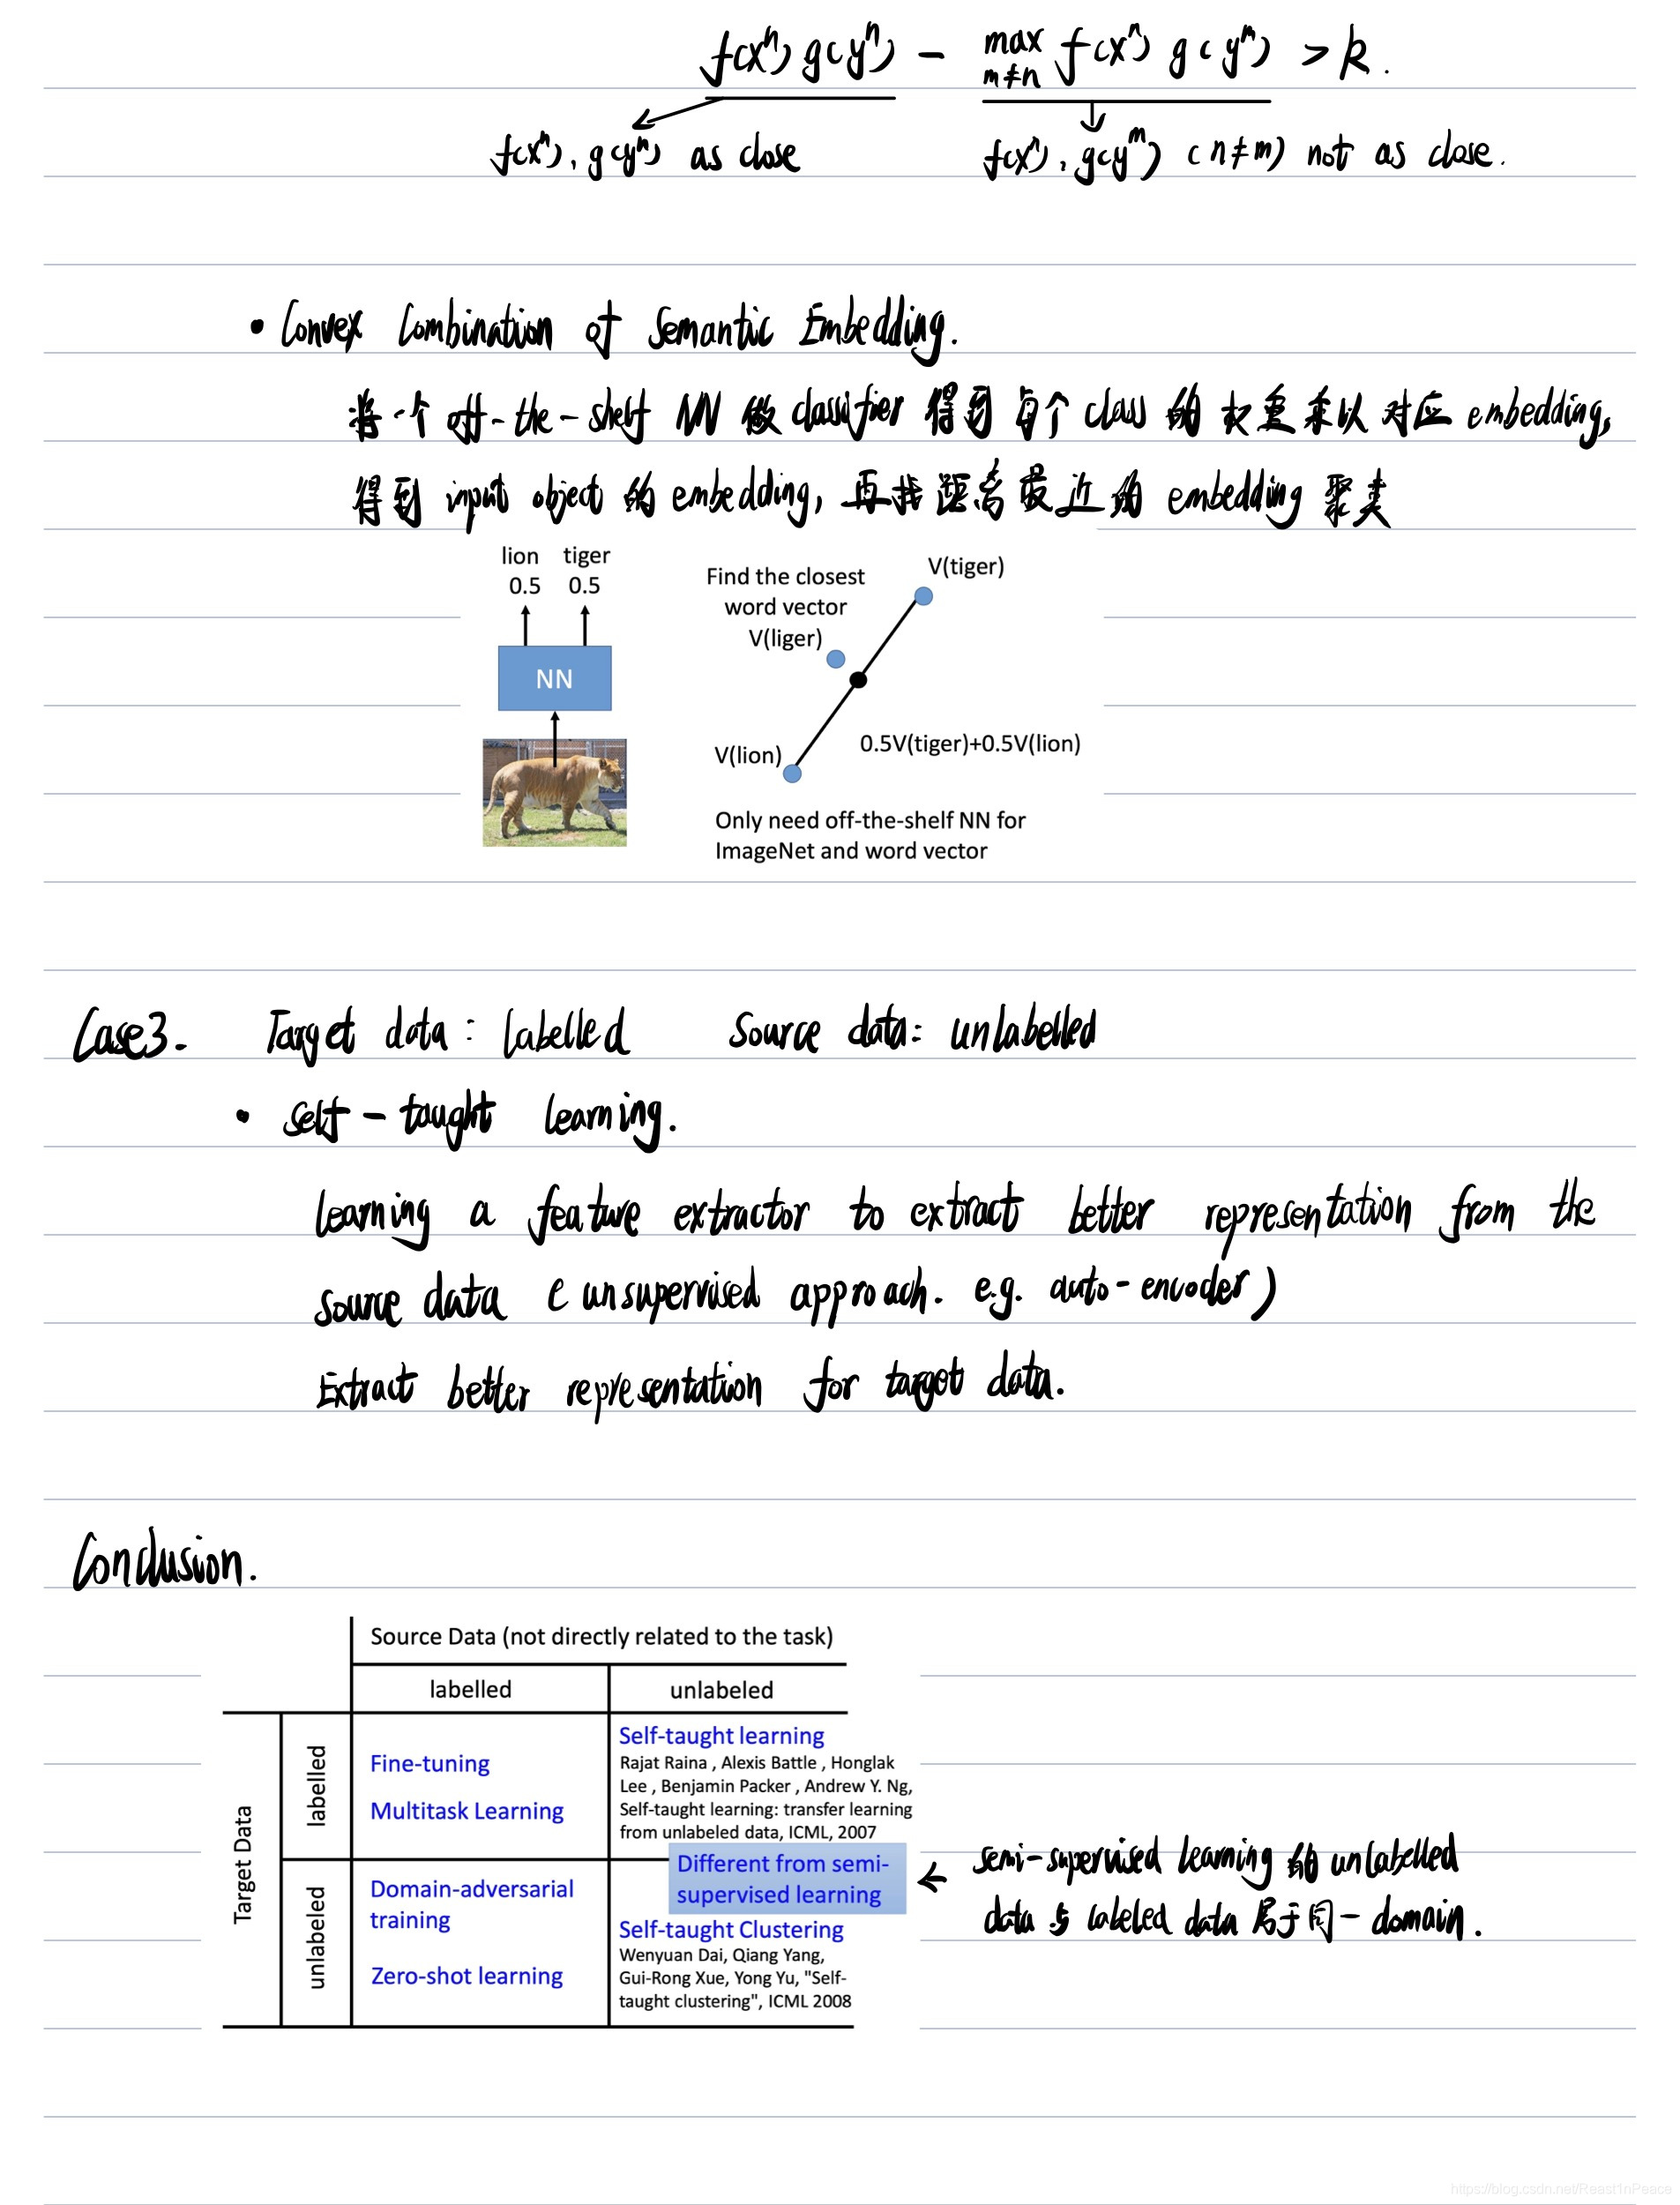 f(xⁿ) g(yⁿ) - max f(xⁿ) g(yᵐ) > k.
m≠n
f(xⁿ), g(yⁿ) as close
f(xⁿ), g(yᵐ) (n≠m) not as close.
• Convex Combination of Semantic Embedding.
将一个 off-the-shelf NN 做 classifier 得到每个 class 的权重乘以对应 embedding,
得到 input object 的 embedding, 再找距离最近的 embedding 聚类
lion tiger
0.5 0.5
NN
Find the closest
word vector
V(tiger)
V(liger)
V(lion)
0.5V(tiger)+0.5V(lion)
Only need off-the-shelf NN for
ImageNet and word vector
Case3. Target data: labelled Source data: unlabelled
• self-taught learning.
learning a feature extractor to extract better representation from the
source data (unsupervised approach. e.g. auto-encoder)
Extract better representation for target data.
Conclusion.
Source Data (not directly related to the task)
labelled unlabeled
Target Data
labelled
Fine-tuning
Multitask Learning
Self-taught learning
Rajat Raina , Alexis Battle , Honglak
Lee , Benjamin Packer , Andrew Y. Ng,
Self-taught learning: transfer learning
from unlabeled data, ICML, 2007
Different from semi-
supervised learning
← semi-supervised learning 的 unlabelled
data 与 labeled data 属于同一 domain.
unlabeled
Domain-adversarial
training
Zero-shot learning
Self-taught Clustering
Wenyuan Dai, Qiang Yang,
Gui-Rong Xue, Yong Yu, "Self-
taught clustering", ICML 2008
https://blog.csdn.net/Reast1nPeace